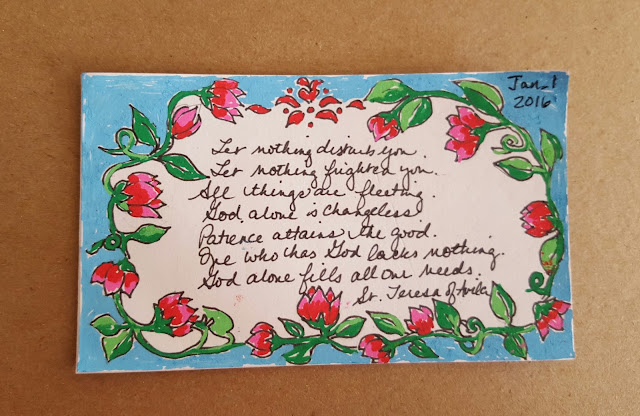 Jan 1
2016
Let nothing disturb you.
Let nothing frighten you.
All things are fleeting.
God alone is changeless.
Patience attains the good.
One who has God lacks nothing.
God alone fills all our needs.
St. Teresa of Avila